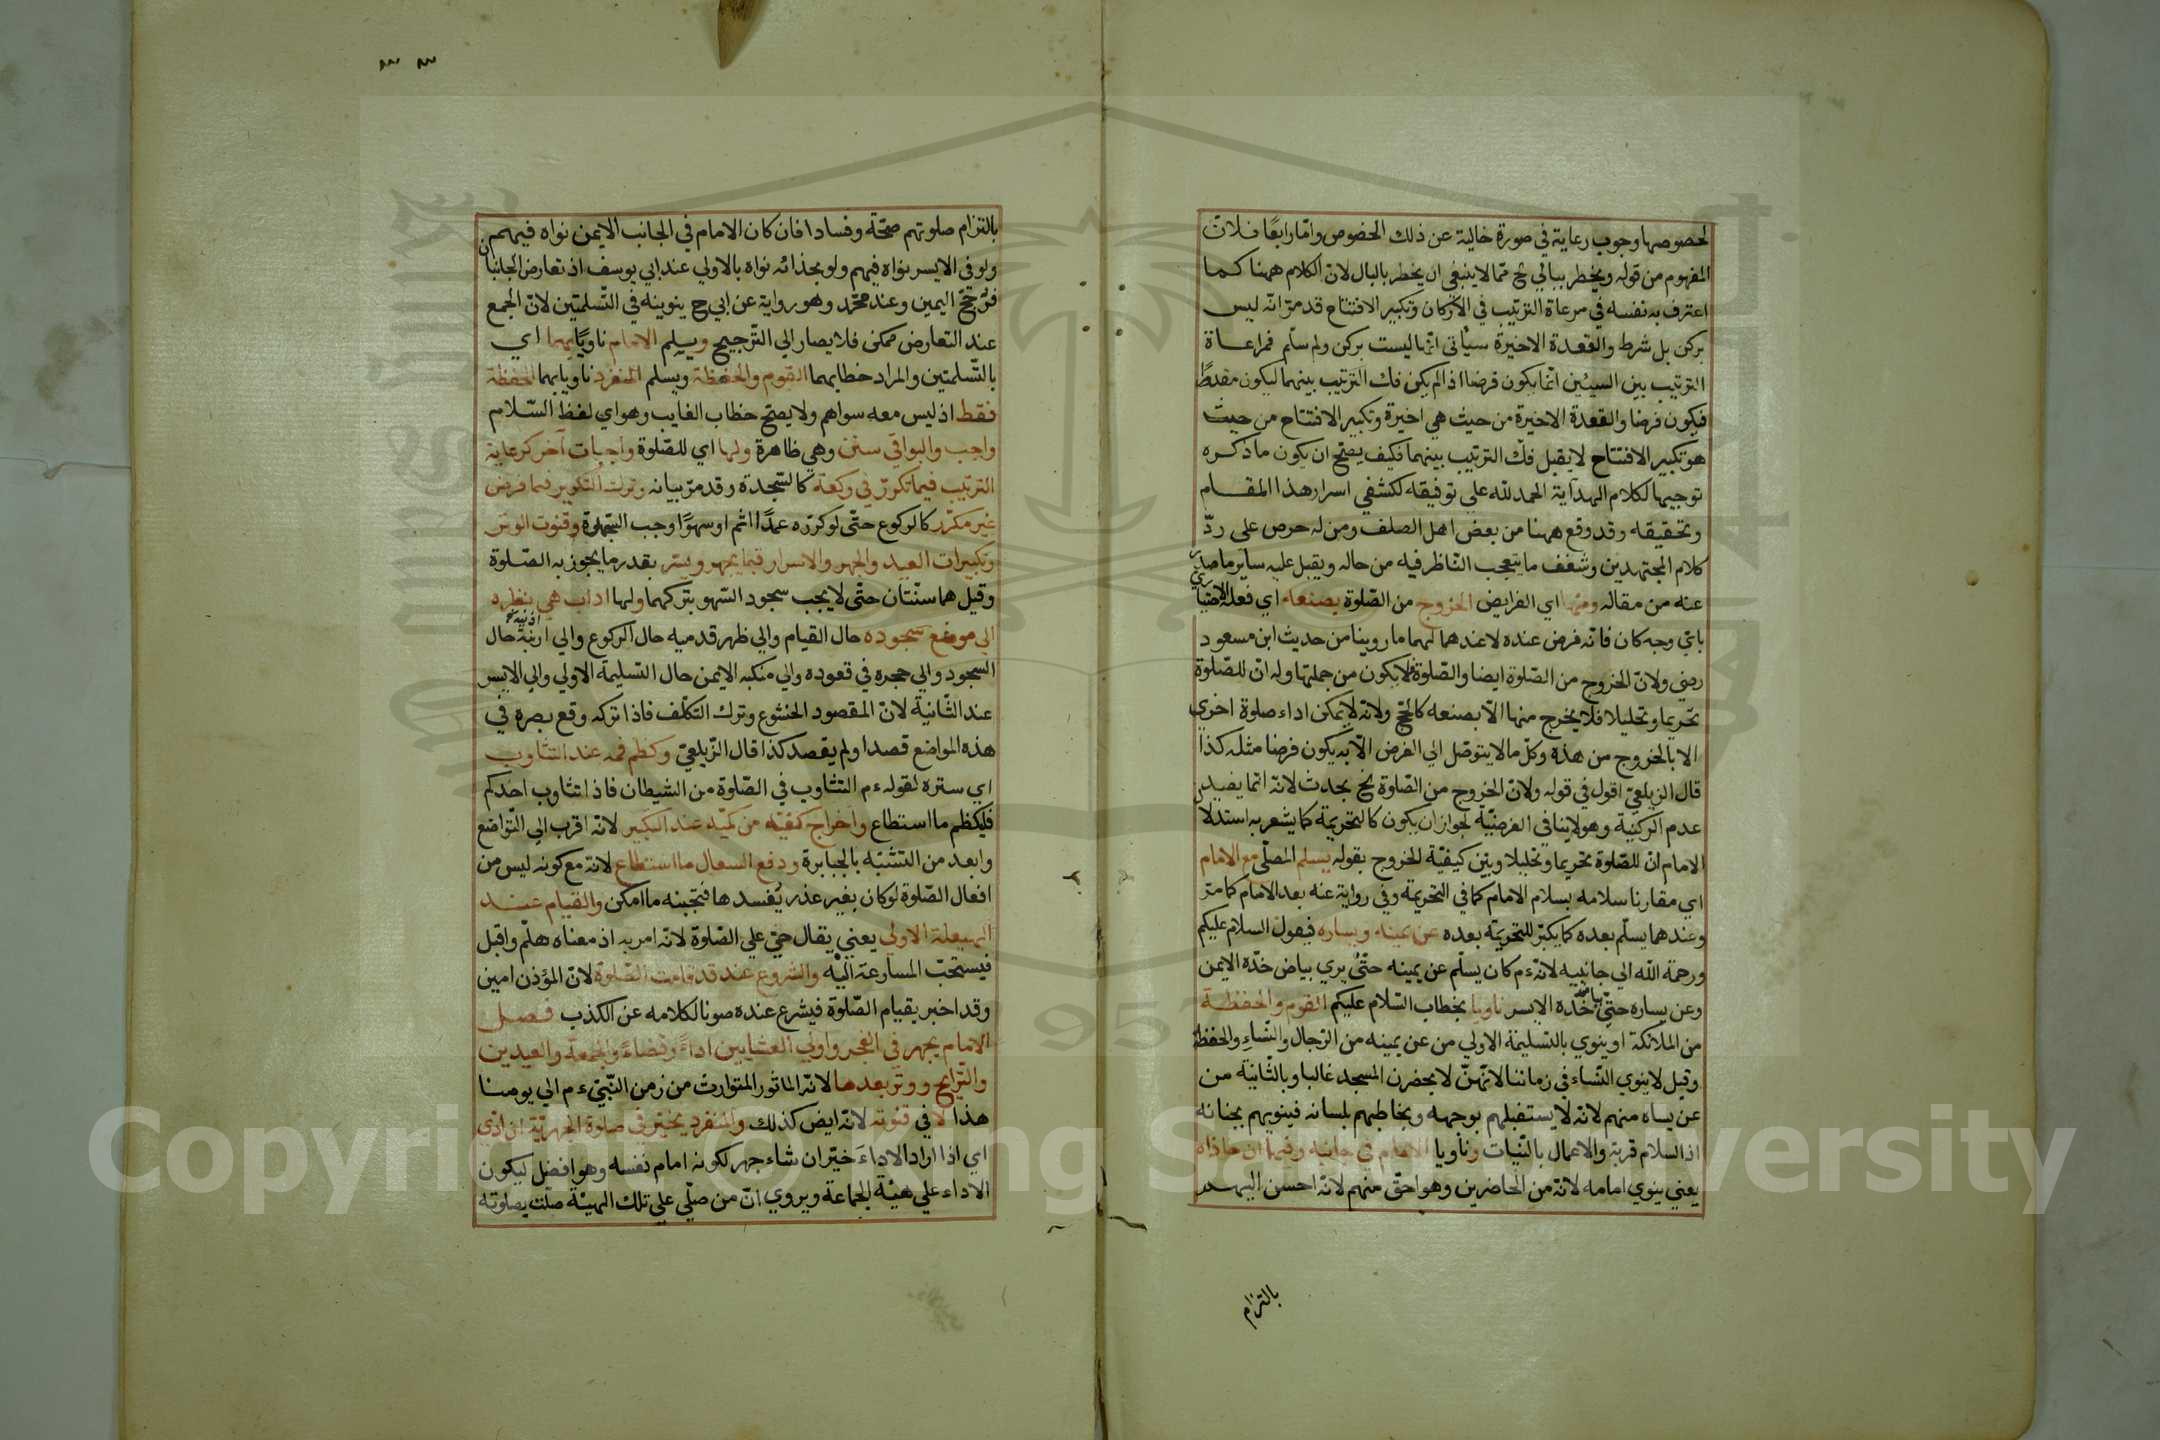 لخصوصها وجوب رعاية في صورة خالية عن ذلك الخصوص وامّا رابعًا فلانّ
المفهوم من قوله ويخطر ببالي الخ ممّا لا ينبغي ان يخطر بالبال لانّ الكلام ههنا كما
اعترف به نفسه في مرعاة الترتيب في الاركان وتكبير الافتتاح قد مرّ انّه ليس
بركن بل شرط والقعدة الاخيرة سيأتي انّها ليست بركن ولم سلّم فمراعاة
الترتيب بين السيئين انّما يكون فرضا اذا لم يكن فك الترتيب بينهما ليكون مفدطًا
فيكون فرضا والقعدة الاخيرة من حيث هي اخيرة وتكبير الافتتاح من حيث
هو تكبير الافتتاح لا يقبل فكّ الترتيب بينهما فكيف يصحّ ان يكون ما ذكره
توجيها لكلام الهداية الحمد للّه علي توفيقه لكشفي اسرار هذا المقام
وتحقيقه وقد وقع ههنا من بعض اهل الصلف ومن له حرص علي ردّ
كلام المجتهدين وشغف ما يتعجب النّاظر فيه من حاله ويقبل عليه ساير ما صدر
عنه من مقاله ومنها اي الفرايض الخروج من الصّلوة بصنعه اي فعله الاختياري
باي وجه كان فانّه فرض عنده لا عندهما لهما ما روينا من حديث ابن مسعود
رضي ولانّ الخروج من الصّلوة ايضا والصّلوة فلا يكون من جملتها وله انّ للصّلوة
تحريما وتحليلا فلا يخرج منها الّا بصنعه كالحجّ ولانّه لا يمكن اداء صلوة اخري
الا بالخروج من هذه وكلّ ما لا يتوصّل الي الفرض الّا به يكون فرضا مثله كذا
قال الزيلعي اقول في قوله ولانّ الخروج من الصّلوة الخ بحث لانّه انّما يفيد
عدم الركنية وهو لا ينافي الفرضيّة لجواز ان يكون كالتحريمة كما يشعر به استدلال
الامام انّ للصّلوة تحريما وتحليلا وبيّن كيفيّة الخروج بقوله يسلم المصلّي مع الامام
اي مقارنا سلامه بسلام الامام كما في التحريمة وفي رواية عنه بعد الامام كما مرّ
وعندهما يسلّم بعده كما يكبّر للتحريمة بعده عن يمينه ويساره فيقول السلام عليكم
ورحمة اللّه الي جانبيه لانّه ءم كان يسلّم عن يمينه حتّي يري بياض خدّه الايمن
وعن يساره حتّي بياض خدّه الايسر ناويا بخطاب السّلام عليكم القوم والحفظة
من الملائكة او ينوي بالتسليمة الاولي من عن يمينه من الرّجال والنّساء والحفظة
وقيل لا ينوي النّساء في زماننا لانّهنّ لا يحضرن المسجد غالبا وبالثّانية من
عن يساه منهم لانّه لا يستقبلهم بوجهه ويخاطبهم بلسانه فينويهم بجنانه
اذ السلام قربة والاعمال بالنّيات وناويا الامام في جانبه وفيهما ان حاذاه
يعني ينوي امامه لانّه من الحاضرين وهو احقّ منهم لانّه احسن اليهم
بالتزام
بالتزام صلوتهم صحّة وفسادا فان كان الامام في الجانب الايمن نواه فيهم
ولو في الايسر نواه فيهم ولو بحذائه نواه بالاولي عند ابي يوسف اذ تعارض الجانبان
فرُجّح اليمين وعند محمّد وهو رواية عن ابي ح ينوينه في التّسلمتين لانّ الجمع
عند التعارض ممكن فلا يصار الي التّرجيح ويسلم الامام ناويًا بهما اي
بالتّسلمتين والمراد خطابهما القوم والحفظة ويسلم المنفرد ناويا بهما الحفظة
فقط اذ ليس معه سواهم ولا يصحّ خطاب الغايب وهو اي لفظ السّلام
واجب والبواقي سنن وهي ظاهرة ولها اي للصّلوة واجبات آخر كرعاية
الترتيب فيما تكرّر في ركعة كالسّجدة وقد مرّ بيانه وترك التكرير فيما فرض
غير مكرّر كالركوع حتّي لو كرّره عمدًا اثم او سهوًا وجب السّهو وقنوت الوتر
وتكبيرات العيد والجهر والاسرار فيما يجهر ويسّر بقدر ما يجوز به الصّلوة
وقيل هما سنّتان حتّي لا يجب سجود السّهو بتركهما ولها اداب هي نظره
الي موضع سجوده حال القيام والي ظهر قدميه حال الركوع والي ارنبة حال
السجود والي حجره في قعوده والي منكبه الايمن حال التسليمة الاولي والي الايسر
عند الثّانية لانّ المقصود الخشوع وترك التكلّف فاذا تركه وقع بصره في
هذه المواضع قصدا ولم يقصد كذا قال الزّيلعيّ وكظم فمه عند التثاوب
اي ستره لقوله ءم التثاوب في الصّلوة من الشيطان فاذا تثاوب احدكم
فليكظم ما استطاع واخراج كفيّه من كمّيه عند التكبير لانّه اقرب الي التّواضع
وابعد من التشبّه بالجبابرة ودفع السعال ما استطاع لانّه مع كونه ليس من
افعال الصّلوة لو كان بغير عذر يُفسدها فتجبنه ما امكن والقيام عند
الحيعلة الاولي يعني يقال حيّ علي الصّلوة لانّه امر به اذ معناه هلمّ واقبل
فيستحبّ المسارعة اليه والشروع عند قد قامت الصّلوة لانّ المؤذن امين
وقد اخبر بقيام الصّلوة فيشرع عنده صونا لكلامه عن الكذب فصل
الامام يجهر في الفجر واولي العشايين اداءً وقضاءً والجمعة والعيدين
والتّرايح ووتر بعدها لانّه الماثور المتوارث من زمن النّبيّ ءم الي يومنا
هذا لا في قنوته لانّه ايض كذلك والمنفرد يخيّر في صلوة الجهريّة ان ادّي
اي اذا اراد الاداءَ خيّر ان شاء جهر لكونه امام نفسه وهو افضل ليكون
الاداء علي هيئة الجماعة ويروي انّ من صلّي علي تلك الهيئة صلّت بصلوته
Copyright © King Saud University